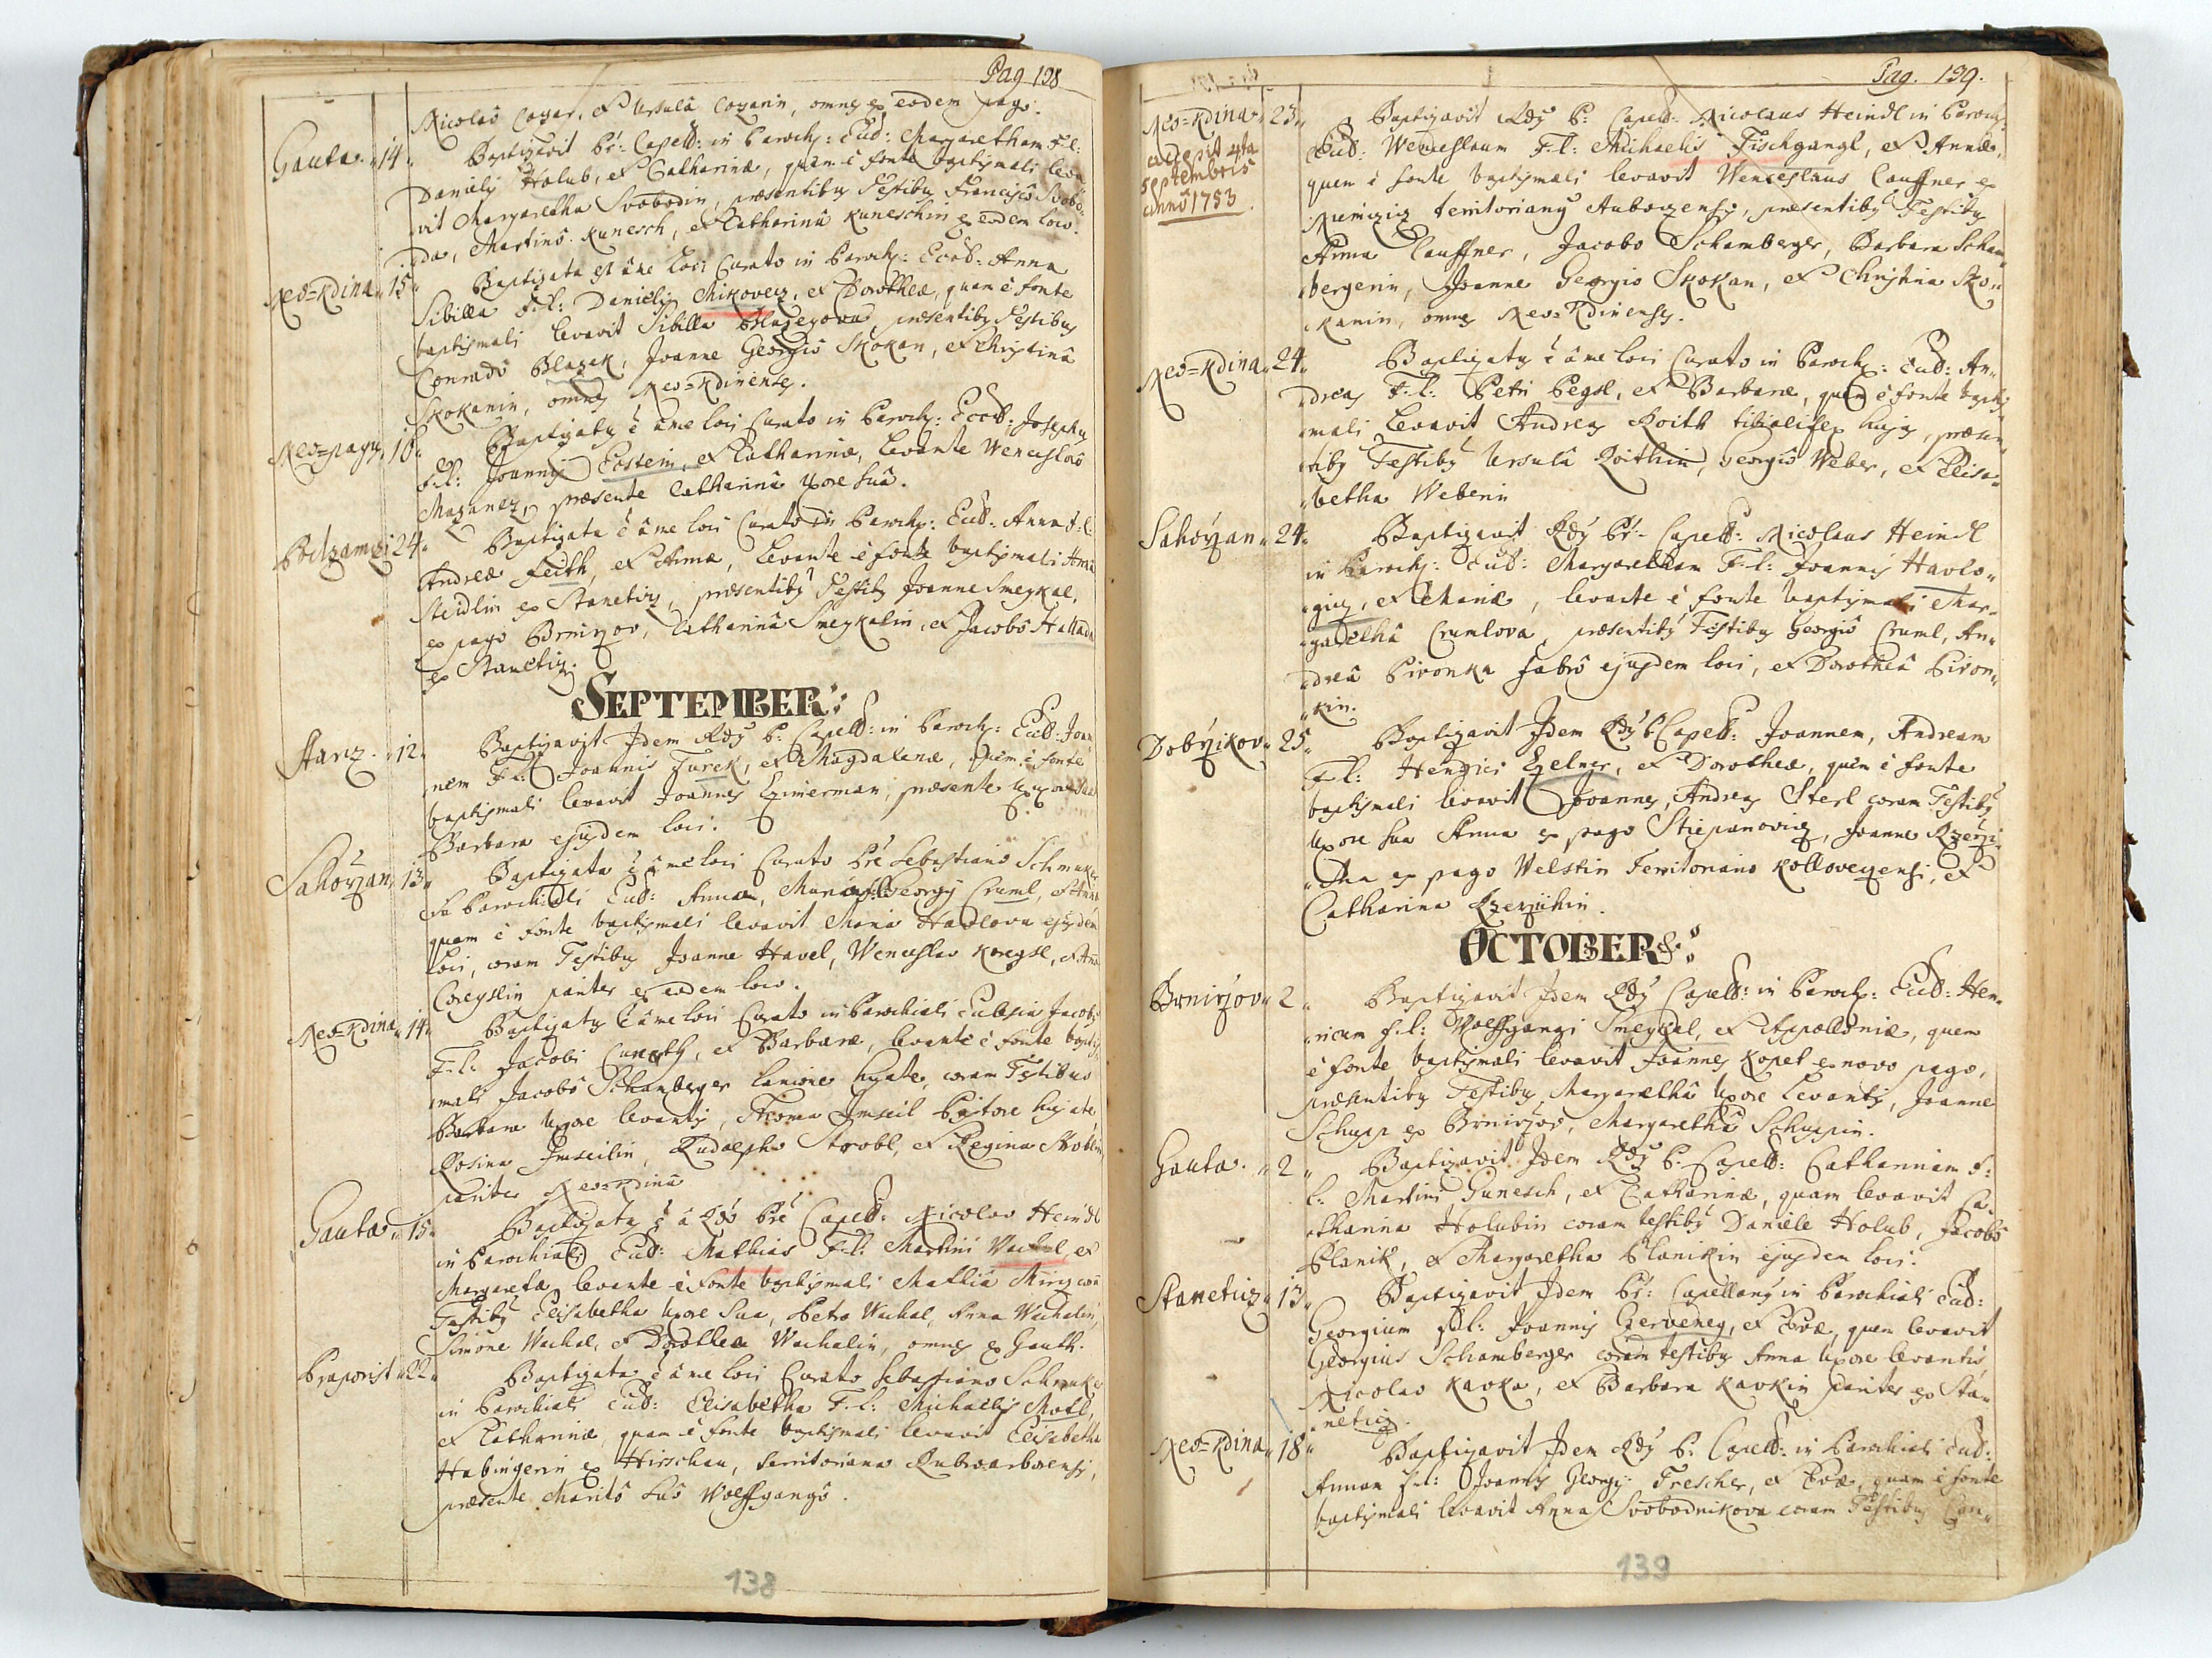 Pag 138
Nicolao Cayar, et Ursula Cayarin, omnes ex eodem pago.
Gauta. 14. Baptizavit Pr: Capell: in Paroch: Eccl: Margaretham F:l:
Danielis Holub, et Catharinæ, quam è fonte baptismali leva
vit Margaretha Svobodin, præsentibus Testibus Francisco Svobo-
da, Martino Kunesch, et Catharina Kuneschin ex eodem loco.
Neo=Kdina 15. Baptizata est à me loci Curato in Paroch: Eccl: Anna
Sibilla F:l: Danielis Mikovecz, et Dorotheæ, quam è fonte
baptismali levavit Sibilla Blazegova præsentibus Testibus
Conrado Blazek, Joanne Georgio Skokan, et Christina
Skokanin, omnes Neo=Kdinenses.
Neo=pagus 16. Baptizatus è à me loci Curato in Paroch: Eccl: Josephus
F:l: Joannis Eostein, et Catharinæ, levante Wenceslao
Maganez, præsente Catharinâ Uxore suâ.
24. Baptizata è à me loci Curato in Paroch: Eccl: Anna F:l:
Andreæ Feith, et Annæ, levante è fonte baptismali Anna
Neidlin ex Staneticz, præsentibus Testibus Joanne Smeykal,
ex pago Brnirzov, Catharinâ Smeykalin, et Jacobo Hallada
ex Staneticz.
SEPTEMBER:
Starz. 12. Baptizavit Idem Rdus P: Capell: in Paroch: Eccl: Joan
nem F:l: Joannis Jurek, et Magdalenæ, quem è fonte
baptismali levavit Joannes Czimerman, præsente Uxore sua
Barbara ejusdem loci.
Sahorzan 13. Baptizata è à me loci Curato Pre Sebastiano Schmuker
in Parochiali Eccl: Anna, Maria F:l: Georgij Cruml, et Annæ
quam è fonte baptismali levavit Maria Havlova ejusdem
loci, coram Testibus Joanne Havel, Wenceslao Koreysl, et Anna
Coreyslin pariter ex eodem loco.
Neo=Kdina 14. Baptizatus è à me loci Curato in Parochiali Ecclesia Jacobus
F:l: Jacobi Cunesch, et Barbaræ, levante è fonte baptis
mali Jacobo Schamberger lanione hujate, coram Testibus
Barbara Uxore levantis, Thoma Imseil Pistore hujate,
Rosina Imseilin, Rudolpho Strobl, et Regina Stroblin
pariter Neo=Kdinâ
Gauta 15. Baptizatus è à Rdo Pre Capell: Nicolao Heindl
in Parochiali Eccl: Mathias F:l: Martini Wachal, et
Margaretæ, levante è fonte baptismali Mathia Minz coram
Testibus Elisabetha Uxore sua, Petro Wachal, Anna Wachalin,
Simone Wachal, et Dorothea Wachalin, omnes ex Gauth.
Praporist 22. Baptizata è à me loci Curato Sebastiano Schmuker
in Parochiali Eccl: Elisabetha F:l: Michaelis Motl,
et Catharinæ, quam è fonte baptismali levavit Elisabetha
Habingerin ex Hirschau, territoriana Rubroarborensi,
præsente Marito suo Wolffgango.
138
Pag. 139.
Neo=Kdina 23. Baptizavit Rdus P: Capell: Nicolaus Heindl in Paroch:
accepit 4ta
Septembris
anno 1753
Eccl: Wenceslaum F:l: Michaelis Fischgangl, et Annæ,
quem è fonte baptismali levavit Wenceslaus Lauffner ex
territorianus præsentibus Testibus
Anna Lauffner, Jacobo Schamberger, Barbara Scham
bergerin, Joanne Georgio Skokan, et Christina Sko-
kanin, omnes Neo=Kdinenses.
Neo=Kdina 24. Baptizatus è à me loci Curato in Paroch: Eccl: An-
dreas F:l: Petri Pegsl, et Barbaræ, quem è fonte baptis
mali levavit Andreas Koith hujus, præsen
tibus Testibus Ursulâ Koithin, Georgio Weber, et Elisa-
betha Weberin
Sahorzan 24. Baptizavit Rdus Pr: Capell: Nicolaus Heindl
in Paroch: Eccl: Margaretham F:l: Joannis Havlo-
gicz, et Mariæ, levante è fonte baptismali Mar-
garetha Crumlova, præsentibus Testibus Georgio Cruml, An-
drea Pivonka fabro ejusdem loci, et Dorotheâ Pivon-
kin.
Dobrzikov 25. Baptizavit Idem Rdus P Capell: Joannem, Andream
F:l: Henrici Ezelner, et Dorotheæ, quem è fonte
baptismali levavit Joannes, Andreas Sterl coram Testibus
Uxore sua Anna ex pago Stiepanovicz, Joanne Rzerzi
cha ex pago Welstin Territoriano Kollovezensi, et
Catharina Rzerzichin.
OCTOBER:
Brnirzov 2. Baptizavit Idem Rdus Capell: in Paroch: Eccl: Hen-
ricum F:l: Wolffgangi Smeykal, et Appolloniæ, quem
è fonte baptismali levavit Joannes Kopet ex novo pago,
præsentibus Testibus Margarethâ Uxore levantis, Joanne
Schupp ex Brnirzov, Margaretha Schuppin.
Gauta. 2. Baptizavit Idem Rdus P. Capell: Catharinam F:
l: Martini Gunesch, et Catharinæ, quam levavit Ca-
tharina Holubin coram testibus Daniele Holub, Jacobo
Planik, et Margaretha Planikin ejusdem loci.
Staneticz 13. Baptizavit Idem Pr: Capellanus in Parochiali Eccl:
Georgium F:l: Joannis Czerveney, et Evæ, quem levavit
Georgius Schamberger coram testibus Anna Uxore levantis,
Nicolao Kavka, et Barbara Kavkin pariter ex Sta-
neticz.
Neo=Kdina 18. Baptizavit Idem Rdus P: Capell: in Parochiali Eccl:
Annam F:l: Joannis Georgij Trescher, et Evæ, quam è fonte
baptismali levavit Anna Svobodnikova coram Testibus
139